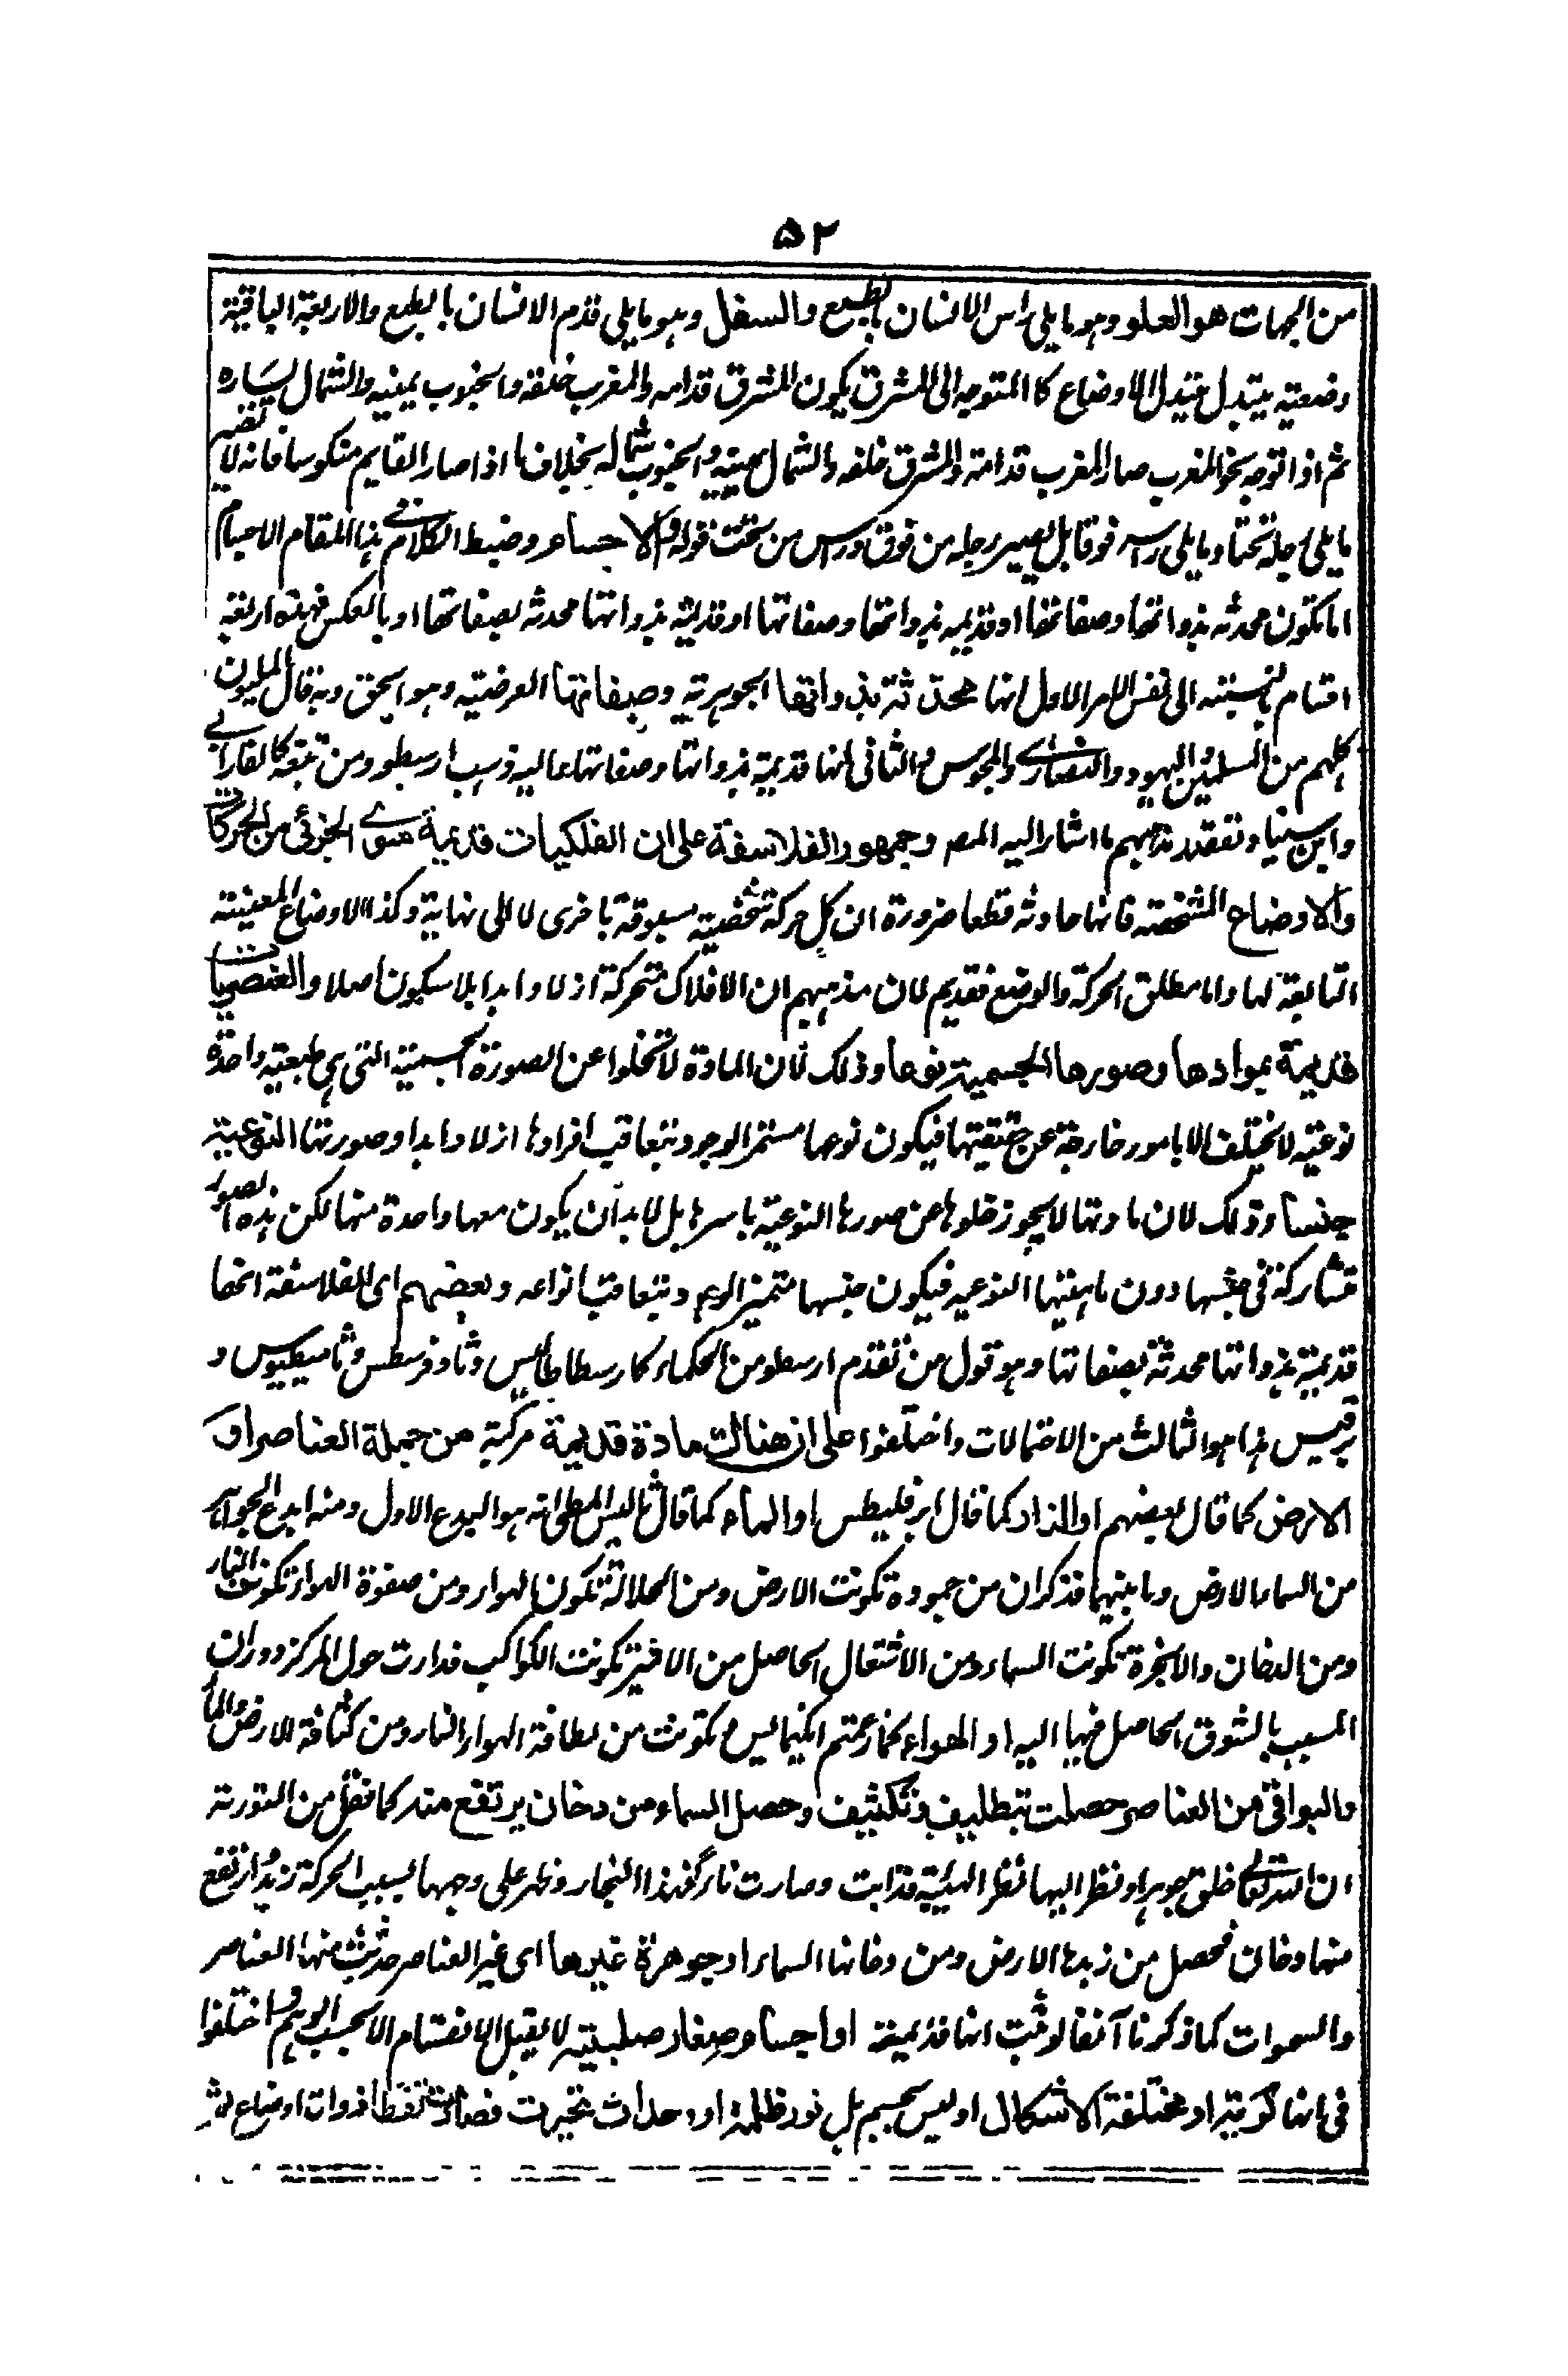 ۵۲
من الجهات هو العلو وهو ما يلي راس الانسان بالطبع والسفل وهو ما يلي قدم الانسان بالطبع والاربعة الباقية
وضعية يتبدل بتبدل الاوضاع كالمتوجه الى المشرق يكون المشرق قدامه والمغرب خلفه والجنوب يمينه والشمال يساره
ثم اذا توجه نحو المغرب صار المغرب قدامه والمشرق خلفه والشمال يمينه والجنوب شماله بخلاف ما اذا صار القايم منكوسا فانه لا تصير
ما يلي رجله تحتا وما يلي راسه فوقا بل يصير رجله من فوق وراس من تحت قوله والاجسام وضبط الكلام في هذا المقام الاجسام
اما تكون محدثه بذواتها وصفاتها او قديمه بذواتها وصفاتها او قديمة بذواتها محدثه بصفاتها او بالعكس فهذه اربعة
اقسام بالنسبته الى نفس الامر الاول انها محدثة بذواتها الجوهرية وصفاتها العرضية وهو الحق وبه قال المليون
كلهم من المسلمين واليهود والنصارى والمجوس والثاني انها قديمة بذواتها وصفاتها واليه ذهب ارسطو ومن تبعه كالفارابي
وابن سينا وتفصيل مذهبهم ما اشار اليه المص وجمهور الفلاسفة على ان الفلكيات قديمة سوى الجزئي من الحركات
والاوضاع المشخصه فانها حادثه قطعا ضرورة ان كل حركة شخصية مسبوقة باخرى لا الى نهاية وكذا الاوضاع المعينته
التابعة لها واما مطلق الحركة والوضع فقديم لان مذهبهم ان الافلاك متحركة ازلا وابدا بلا سكون اصلا والعنصريات
قديمة بموادها وصورها الجسمية نوعا وذلك لان المادة لا تخلوا عن الصورة الجسمية التي هي طبعية واحدة
نوعية لا تختلف الا بامور خارجة عن حقيقتها فيكون نوعها مستمر الوجود بتعاقب افرادها ازلا وابدا وصورتها النوعية
جنسا وذلك لان مادتها لا يجوز خلوها عن صورها النوعية باسرها بل لا بد ان يكون معها واحدة منها لكن هذه الصور
متشاركة في جنسها دون ماهيتها النوعيه فيكون جنسها مستمر الوجود بتعاقب انواعه وبعضهم اي الفلاسفة انها
قديمة بذواتها محدثة بصفاتها وهو قول من تقدم ارسطو من الحكماء كارسطاطاليس وثاوفرسطس وثامسطيوس و
برقلس هذا هو الثالث من الاحتمالات واختلفوا على ان هناك مادة قديمة مركبة من جملة العناصر او
الارض كما قال بعضهم او النار كما قال ابرقليطس او الماء كما قال ثاليس الملطي انه هو المبدع الاول ومنه ابدع الجواهر
من السماء الارض وما بينهما فذكر ان من جموده تكونت الارض ومن انحلاله تكون الهواء ومن صفوة الهواء تكونت النار
ومن الدخان والابخرة تكونت السماء ومن الاشتعال الحاصل من الاثير تكونت الكواكب فدارت حول المركز دوران
المسبب بالشوق الحاصل فيها اليه او الهواء كما زعمتم انكيمايس وتكونت من لطافة الهواء النار ومن كثافة الارض والماء
والبواقي من العناصر حصلت بتلطيف وتكثيف وحصل السماء من دخان يرتفع منه كما نقل من التورىة
ان الله تعالى خلق جوهرا ونظر اليها نظر الهيبة فذابت وصارت ماء وظهر على وجهها بسبب الحركة زبد وارتفع
منها دخان فحصل من زبدها الارض ومن دخانها السماء او جوهرة غيرها اي غير العناصر حدثت منها العناصر
والسموات كما ذكرنا آنفا لو ثبت انها قديمة او اجسام صغار صلبيته لا يقبل الانقسام الا بحسب الوهم واختلفوا
في انها كروية او مختلفة الاشكال او ليس بجسم بل نور وظلمة او وحدات تحيزت فصارت نقطا ذوات اوضاع ثم